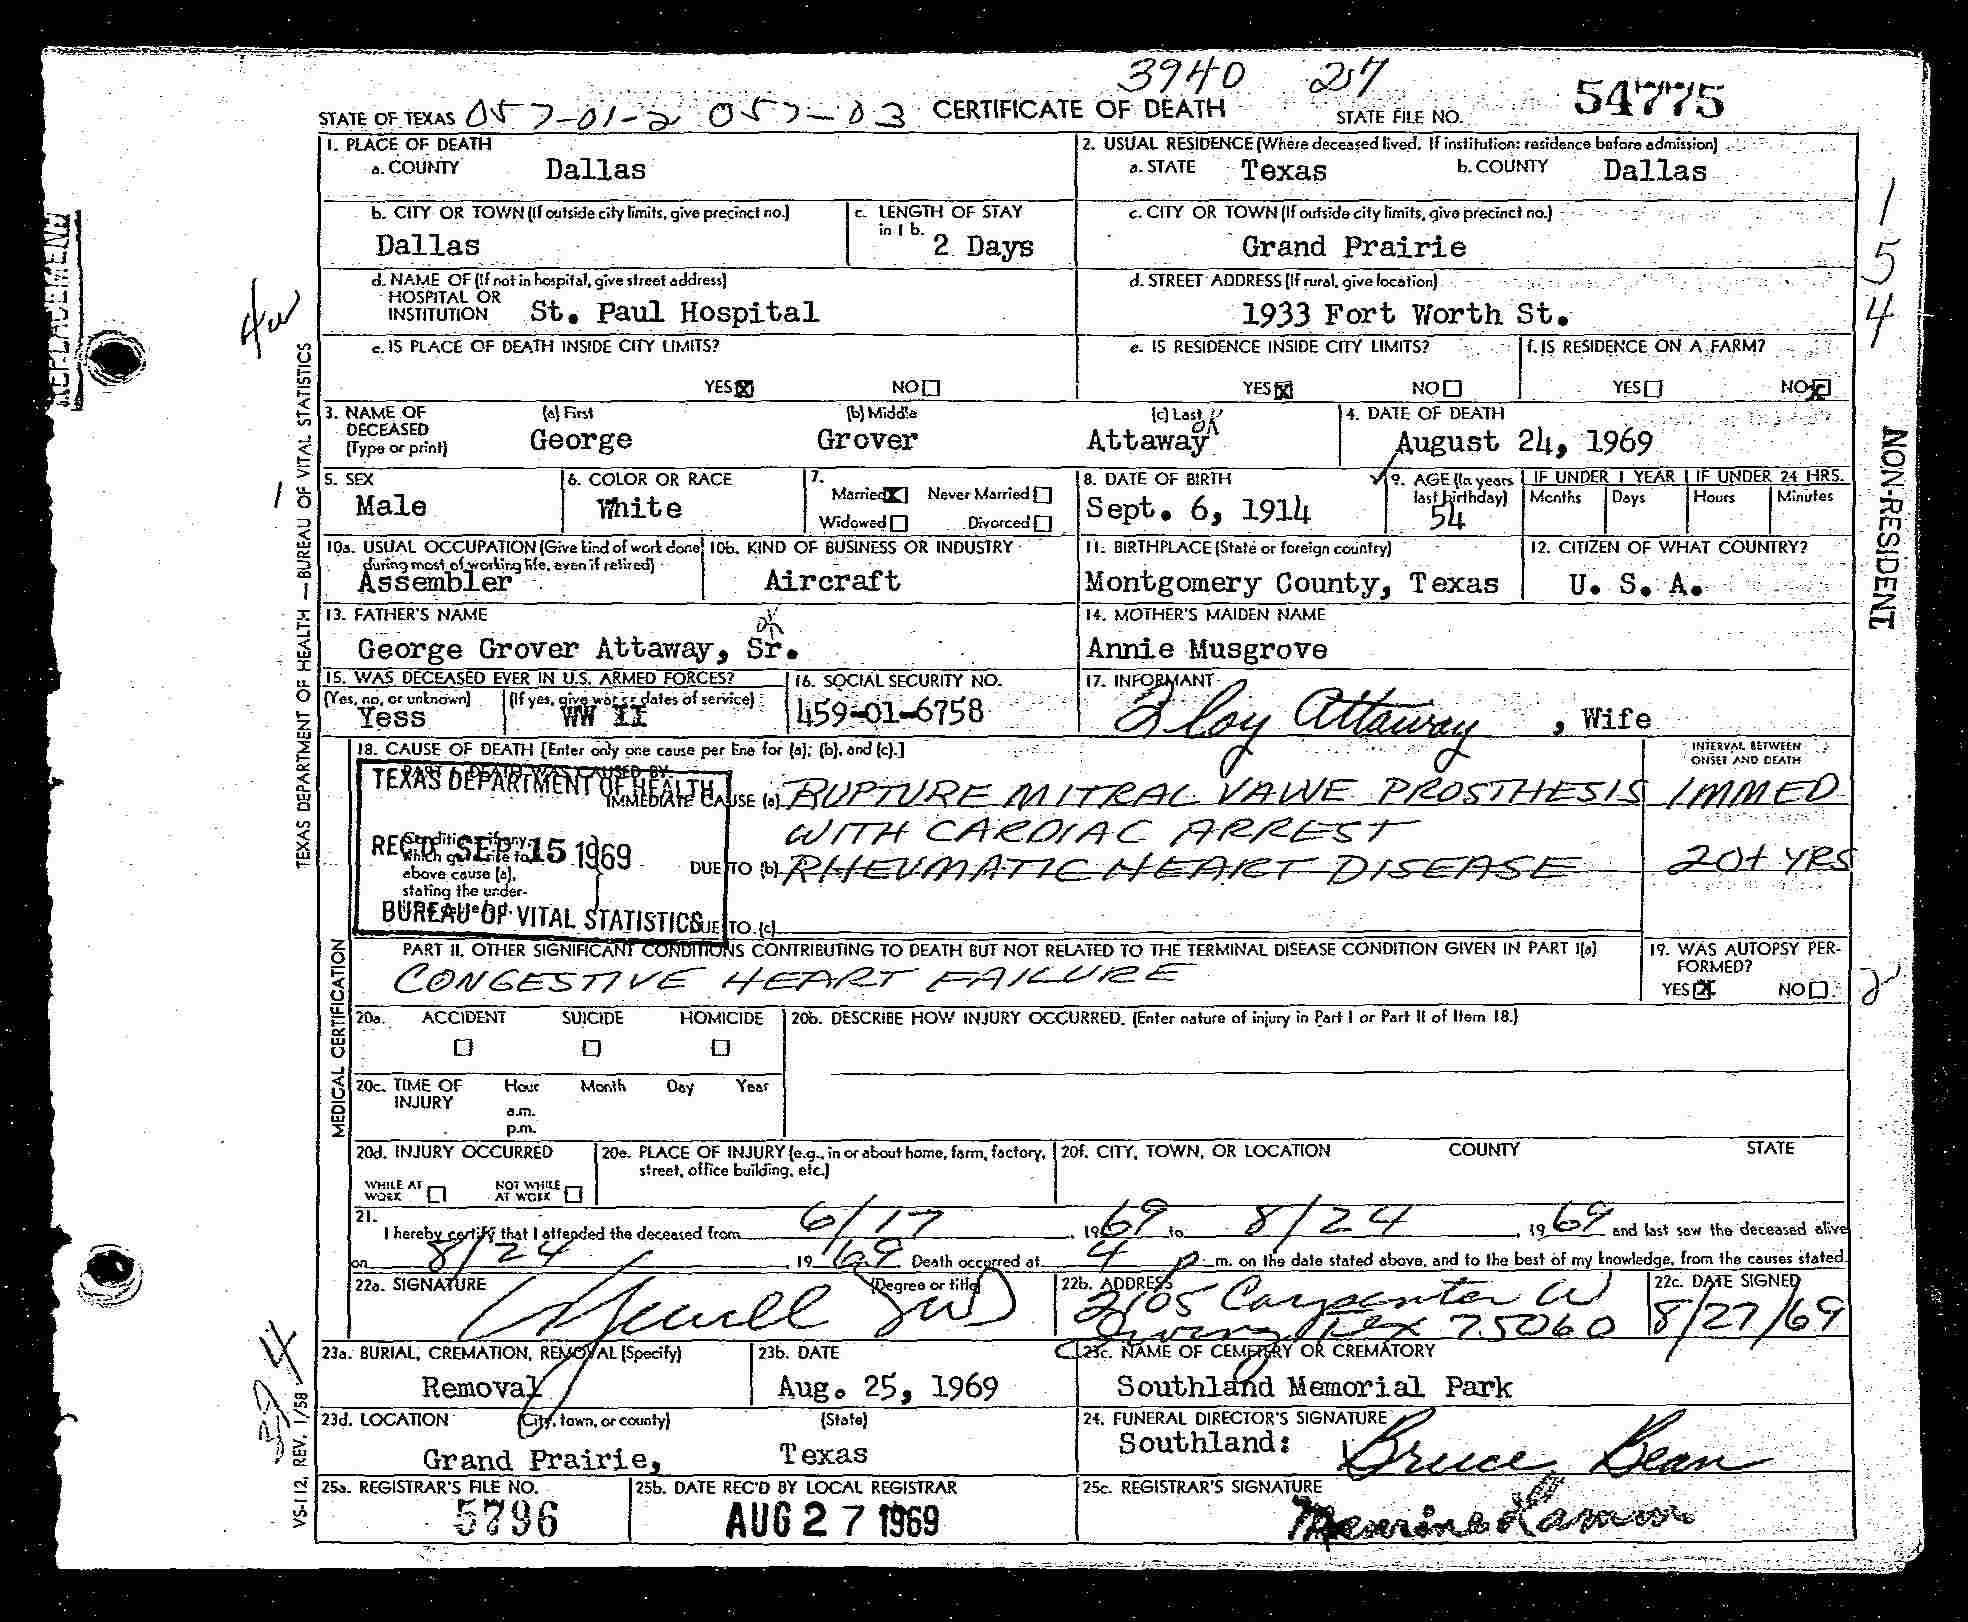 3940 257
STATE OF TEXAS 057-01-2 057-03 CERTIFICATE OF DEATH STATE FILE NO. 54775
1. PLACE OF DEATH
a. COUNTY Dallas
2. USUAL RESIDENCE (Where deceased lived. If institution: residence before admission)
a. STATE Texas b. COUNTY Dallas
b. CITY OR TOWN (If outside city limits, give precinct no.)
Dallas
c. LENGTH OF STAY
in 1 b. 2 Days
c. CITY OR TOWN (If outside city limits, give precinct no.)
Grand Prairie
d. NAME OF (If not in hospital, give street address)
HOSPITAL OR
INSTITUTION St. Paul Hospital
d. STREET ADDRESS (If rural, give location)
1933 Fort Worth St.
e. IS PLACE OF DEATH INSIDE CITY LIMITS?
YES X NO
e. IS RESIDENCE INSIDE CITY LIMITS?
YES X NO
f. IS RESIDENCE ON A FARM?
YES NO X
3. NAME OF
DECEASED
(Type or print)
(a) First (b) Middle (c) Last
George Grover Attaway OK
4. DATE OF DEATH
August 24, 1969
5. SEX
Male
6. COLOR OR RACE
White
7.
Married X Never Married
Widowed Divorced
8. DATE OF BIRTH
Sept. 6, 1914
9. AGE (In years
last birthday)
54
IF UNDER 1 YEAR IF UNDER 24 HRS.
Months Days Hours Minutes
10a. USUAL OCCUPATION (Give kind of work done
during most of working life, even if retired)
Assembler
10b. KIND OF BUSINESS OR INDUSTRY
Aircraft
11. BIRTHPLACE (State or foreign country)
Montgomery County, Texas
12. CITIZEN OF WHAT COUNTRY?
U. S. A.
13. FATHER'S NAME
George Grover Attaway, Sr. OK
14. MOTHER'S MAIDEN NAME
Annie Musgrove
15. WAS DECEASED EVER IN U.S. ARMED FORCES?
(Yes, no, or unknown) (If yes, give war or dates of service)
Yess WW II
16. SOCIAL SECURITY NO.
459-01-6758
17. INFORMANT
Floy Attaway , Wife
18. CAUSE OF DEATH [Enter only one cause per line for (a), (b), and (c).]
INTERVAL BETWEEN
ONSET AND DEATH
PART I. DEATH WAS CAUSED BY:
IMMEDIATE CAUSE (a) RUPTURE MITRAL VALVE PROSTHESIS IMMED
WITH CARDIAC ARREST
Conditions, if any,
which gave rise to
above cause (a),
stating the under-
DUE TO (b) RHEUMATIC HEART DISEASE 20+ YRS
DUE TO (c)
TEXAS DEPARTMENT OF HEALTH
REC'D SEP 15 1969
BUREAU OF VITAL STATISTICS
PART II. OTHER SIGNIFICANT CONDITIONS CONTRIBUTING TO DEATH BUT NOT RELATED TO THE TERMINAL DISEASE CONDITION GIVEN IN PART I(a)
CONGESTIVE HEART FAILURE
19. WAS AUTOPSY PER-
FORMED?
YES X NO
20a. ACCIDENT SUICIDE HOMICIDE
20b. DESCRIBE HOW INJURY OCCURRED. (Enter nature of injury in Part I or Part II of Item 18.)
20c. TIME OF
INJURY
Hour Month Day Year
a.m.
p.m.
20d. INJURY OCCURRED
WHILE AT
WORK
NOT WHILE
AT WORK
20e. PLACE OF INJURY (e.g., in or about home, farm, factory,
street, office building, etc.)
20f. CITY, TOWN, OR LOCATION COUNTY STATE
21.
I hereby certify that I attended the deceased from 6/17, 1969 to 8/24, 1969 and last saw the deceased alive
on 8/24, 1969. Death occurred at 4 p m. on the date stated above, and to the best of my knowledge, from the causes stated.
22a. SIGNATURE (Degree or title)
22b. ADDRESS
2105 Carpenter W
Irving, Tex 75060
22c. DATE SIGNED
8/27/69
23a. BURIAL, CREMATION, REMOVAL (Specify)
Removal
23b. DATE
Aug. 25, 1969
23c. NAME OF CEMETERY OR CREMATORY
Southland Memorial Park
23d. LOCATION (City, town, or county) (State)
Grand Prairie, Texas
24. FUNERAL DIRECTOR'S SIGNATURE
Southland: Bruce Bean
25a. REGISTRAR'S FILE NO.
5796
25b. DATE REC'D BY LOCAL REGISTRAR
AUG 27 1969
25c. REGISTRAR'S SIGNATURE
REPLACEMENT
TEXAS DEPARTMENT OF HEALTH — BUREAU OF VITAL STATISTICS
MEDICAL CERTIFICATION
VS-112, REV. 1/58
1
154
NON-RESIDENT
2